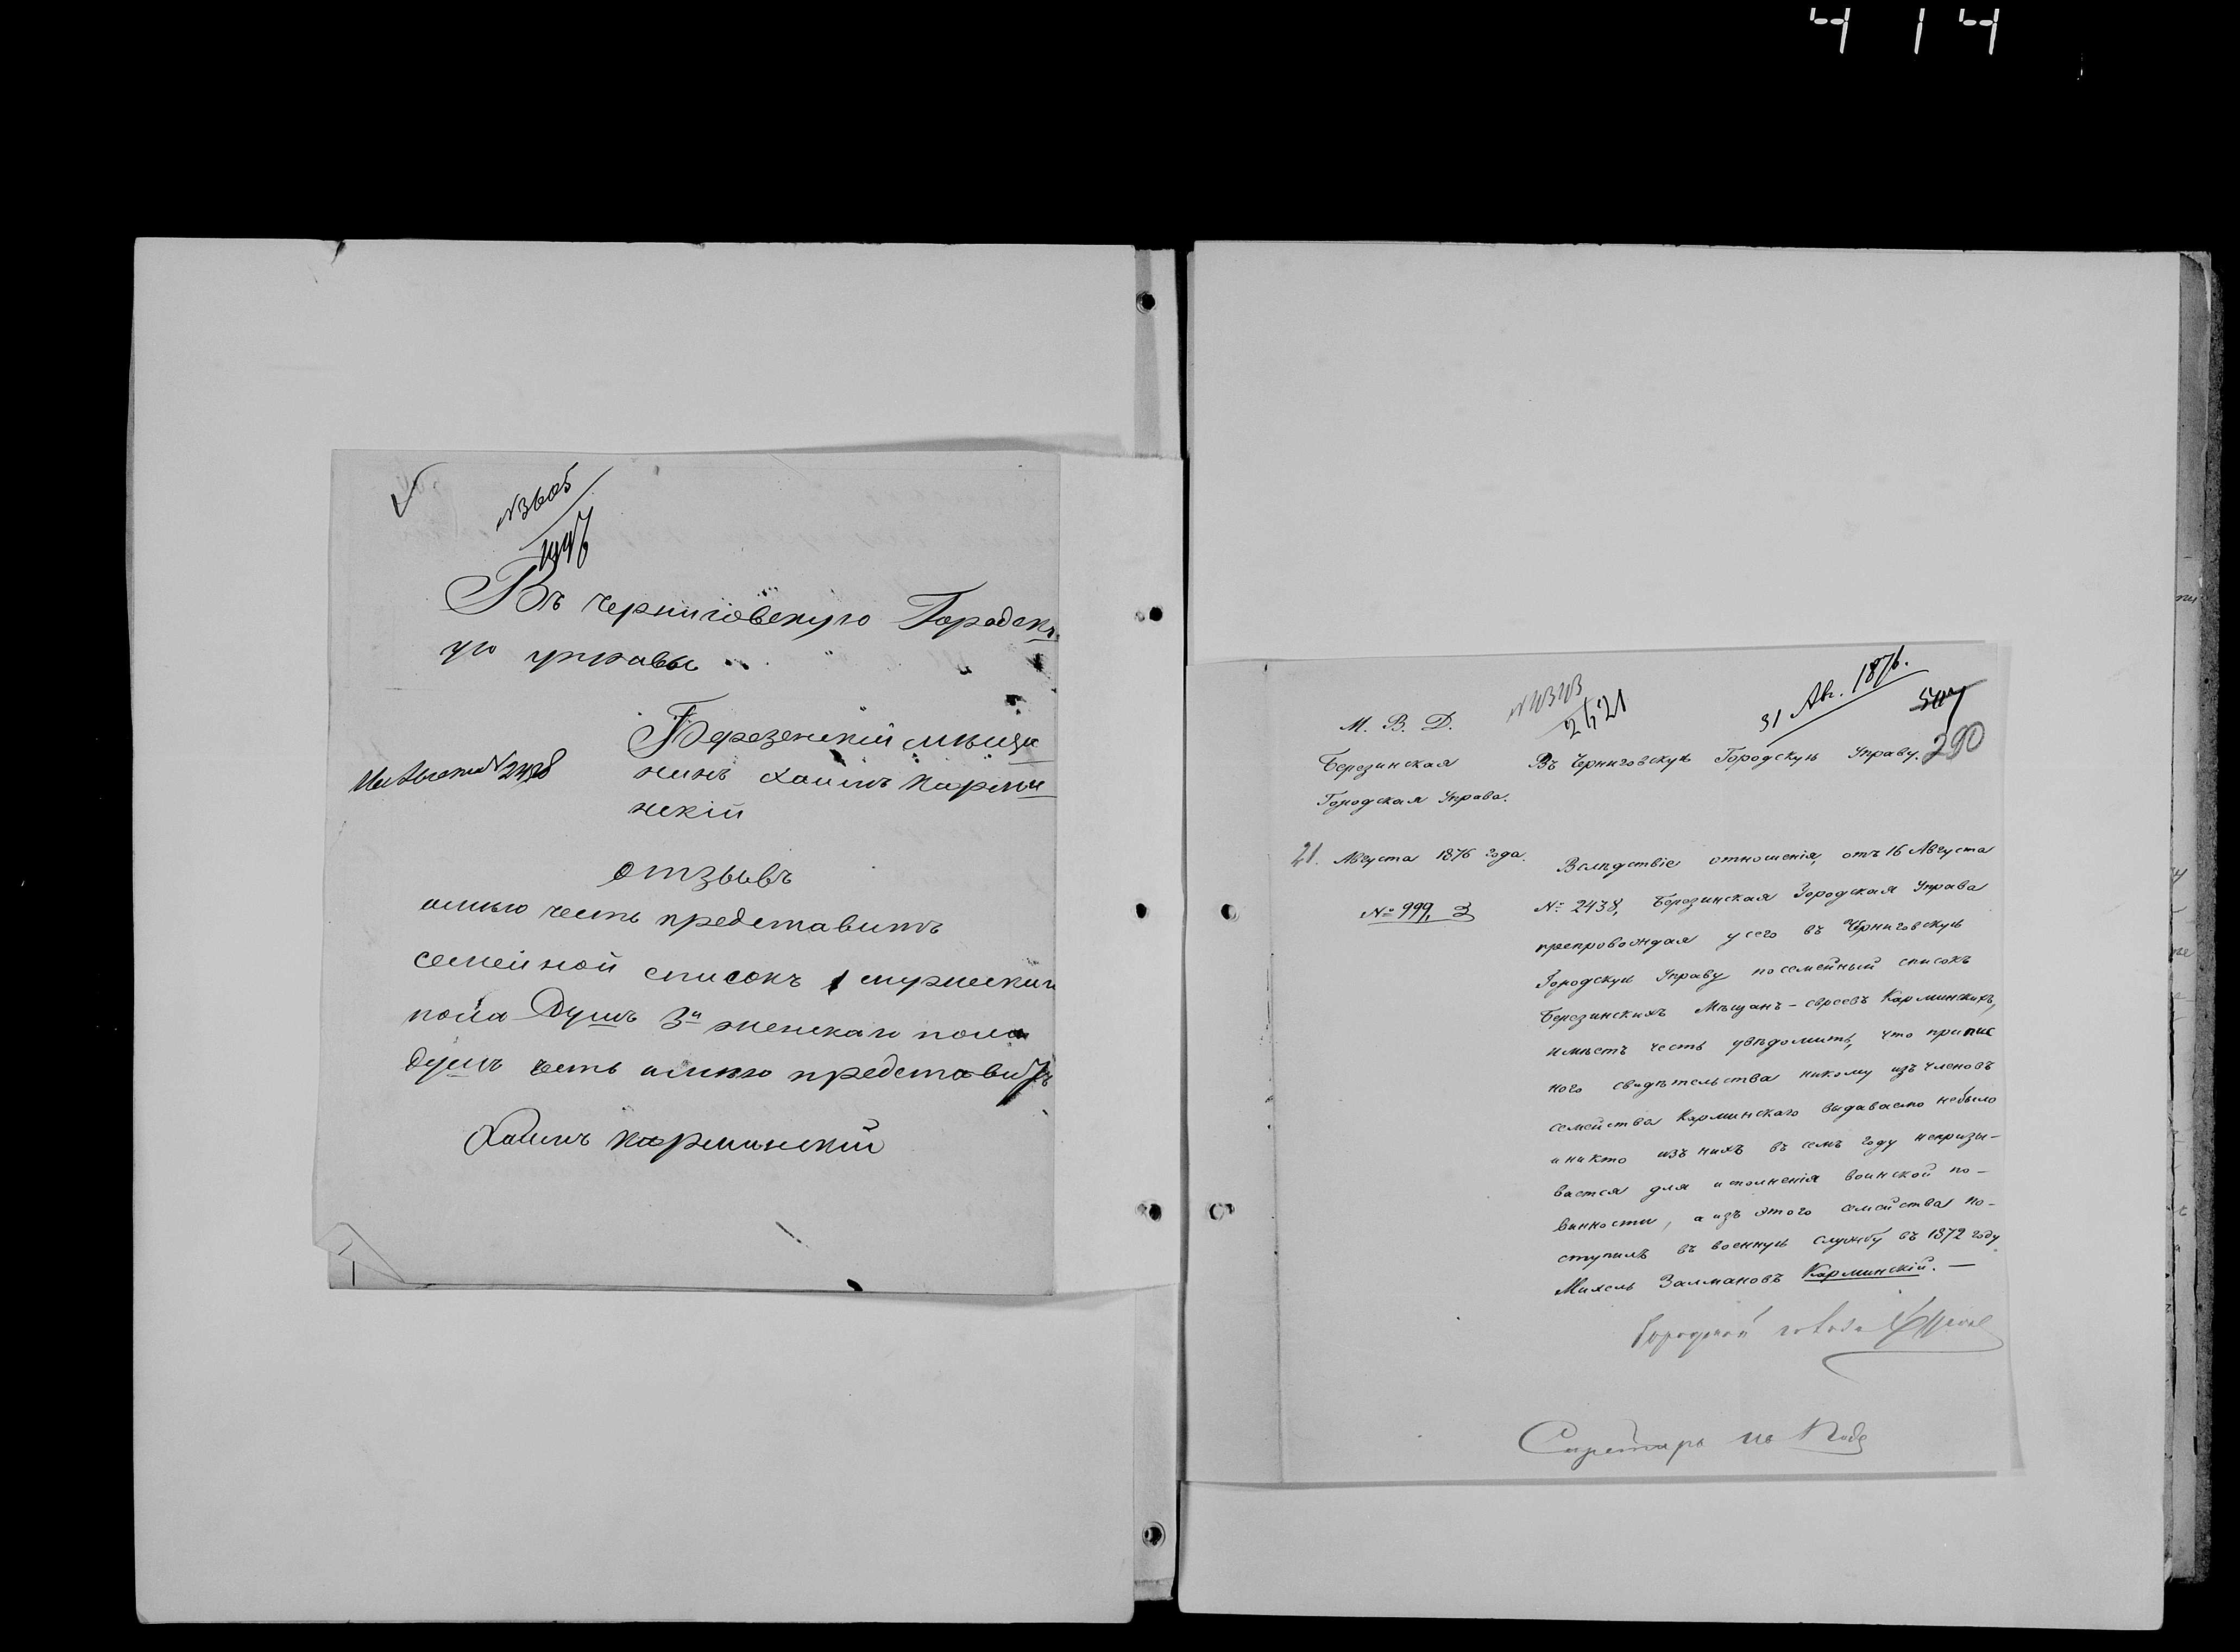 4 14
№3605
Въ черниговскую Городск
ую управы
Березенскій мѣща
нинъ Хаимъ Карми
нскій
№ 2438
отзывъ
имѣю честь представить
семейной списокъ 1 мужеский
пола Душъ 3и женскаго пола
душъ честь имѣю представить
Хаимъ Карминскій
31 Авг. 1876.
507
290
М. В. Д.
2421
Березинская
Городская Управа.
Въ Черниговскую Городскую Управу.
21. Августа 1876 года.
№ 999, 3
Вслѣдствіе отношенія, отъ 16 Августа
№ 2438, Березинская Городская Управа
препровождая у сего въ Черниговскую
Городскую Управу посемейный списокъ
Березинскихъ Мѣщанъ-евреевъ Карминскихъ,
имѣетъ честь увѣдомить, что припис
ного свидѣтельства никому изъ членовъ
семейства Карминскаго выдаваемо небыло
иникто изъ нихъ въ семъ году непризы-
вается для исполненія воинской по-
винности, а изъ этого семейства по-
ступилъ въ военную службу въ 1872 году
Михель Залмановъ Карминскій. —
Городской голова
Секретарь